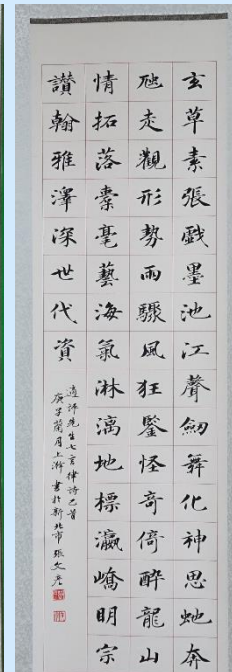 玄草素張戱墨池江聲劒舞化神思虵奔
虺走觀形勢雨驟風狂鑒怪奇倚醉龍山
情拓落橐毫藝海氣淋漓地標瀛嶠明宗
讚翰雅澤深世代資
先生七言律詩乙首
庚子蘭月上澣書於新北市 張文彥